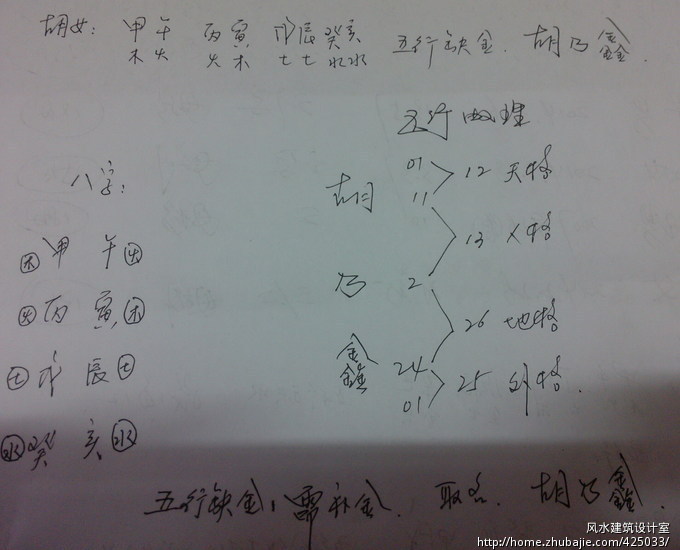 胡女: 甲午 丙寅 戊辰 癸亥 五行缺金. 胡乃鑫.
木火 火木 土土 水水
五行数理
01
12 天格
胡 11
八字:
13 人格
木 甲 午 火
乃 2
火 丙 寅 木
26 地格
鑫 24
土 戊 辰 土
25 外格.
01
水 癸 亥 水
五行缺金, 需补金. 取名. 胡乃鑫.
风水建筑设计室
http://home.zhubajie.com/425033/